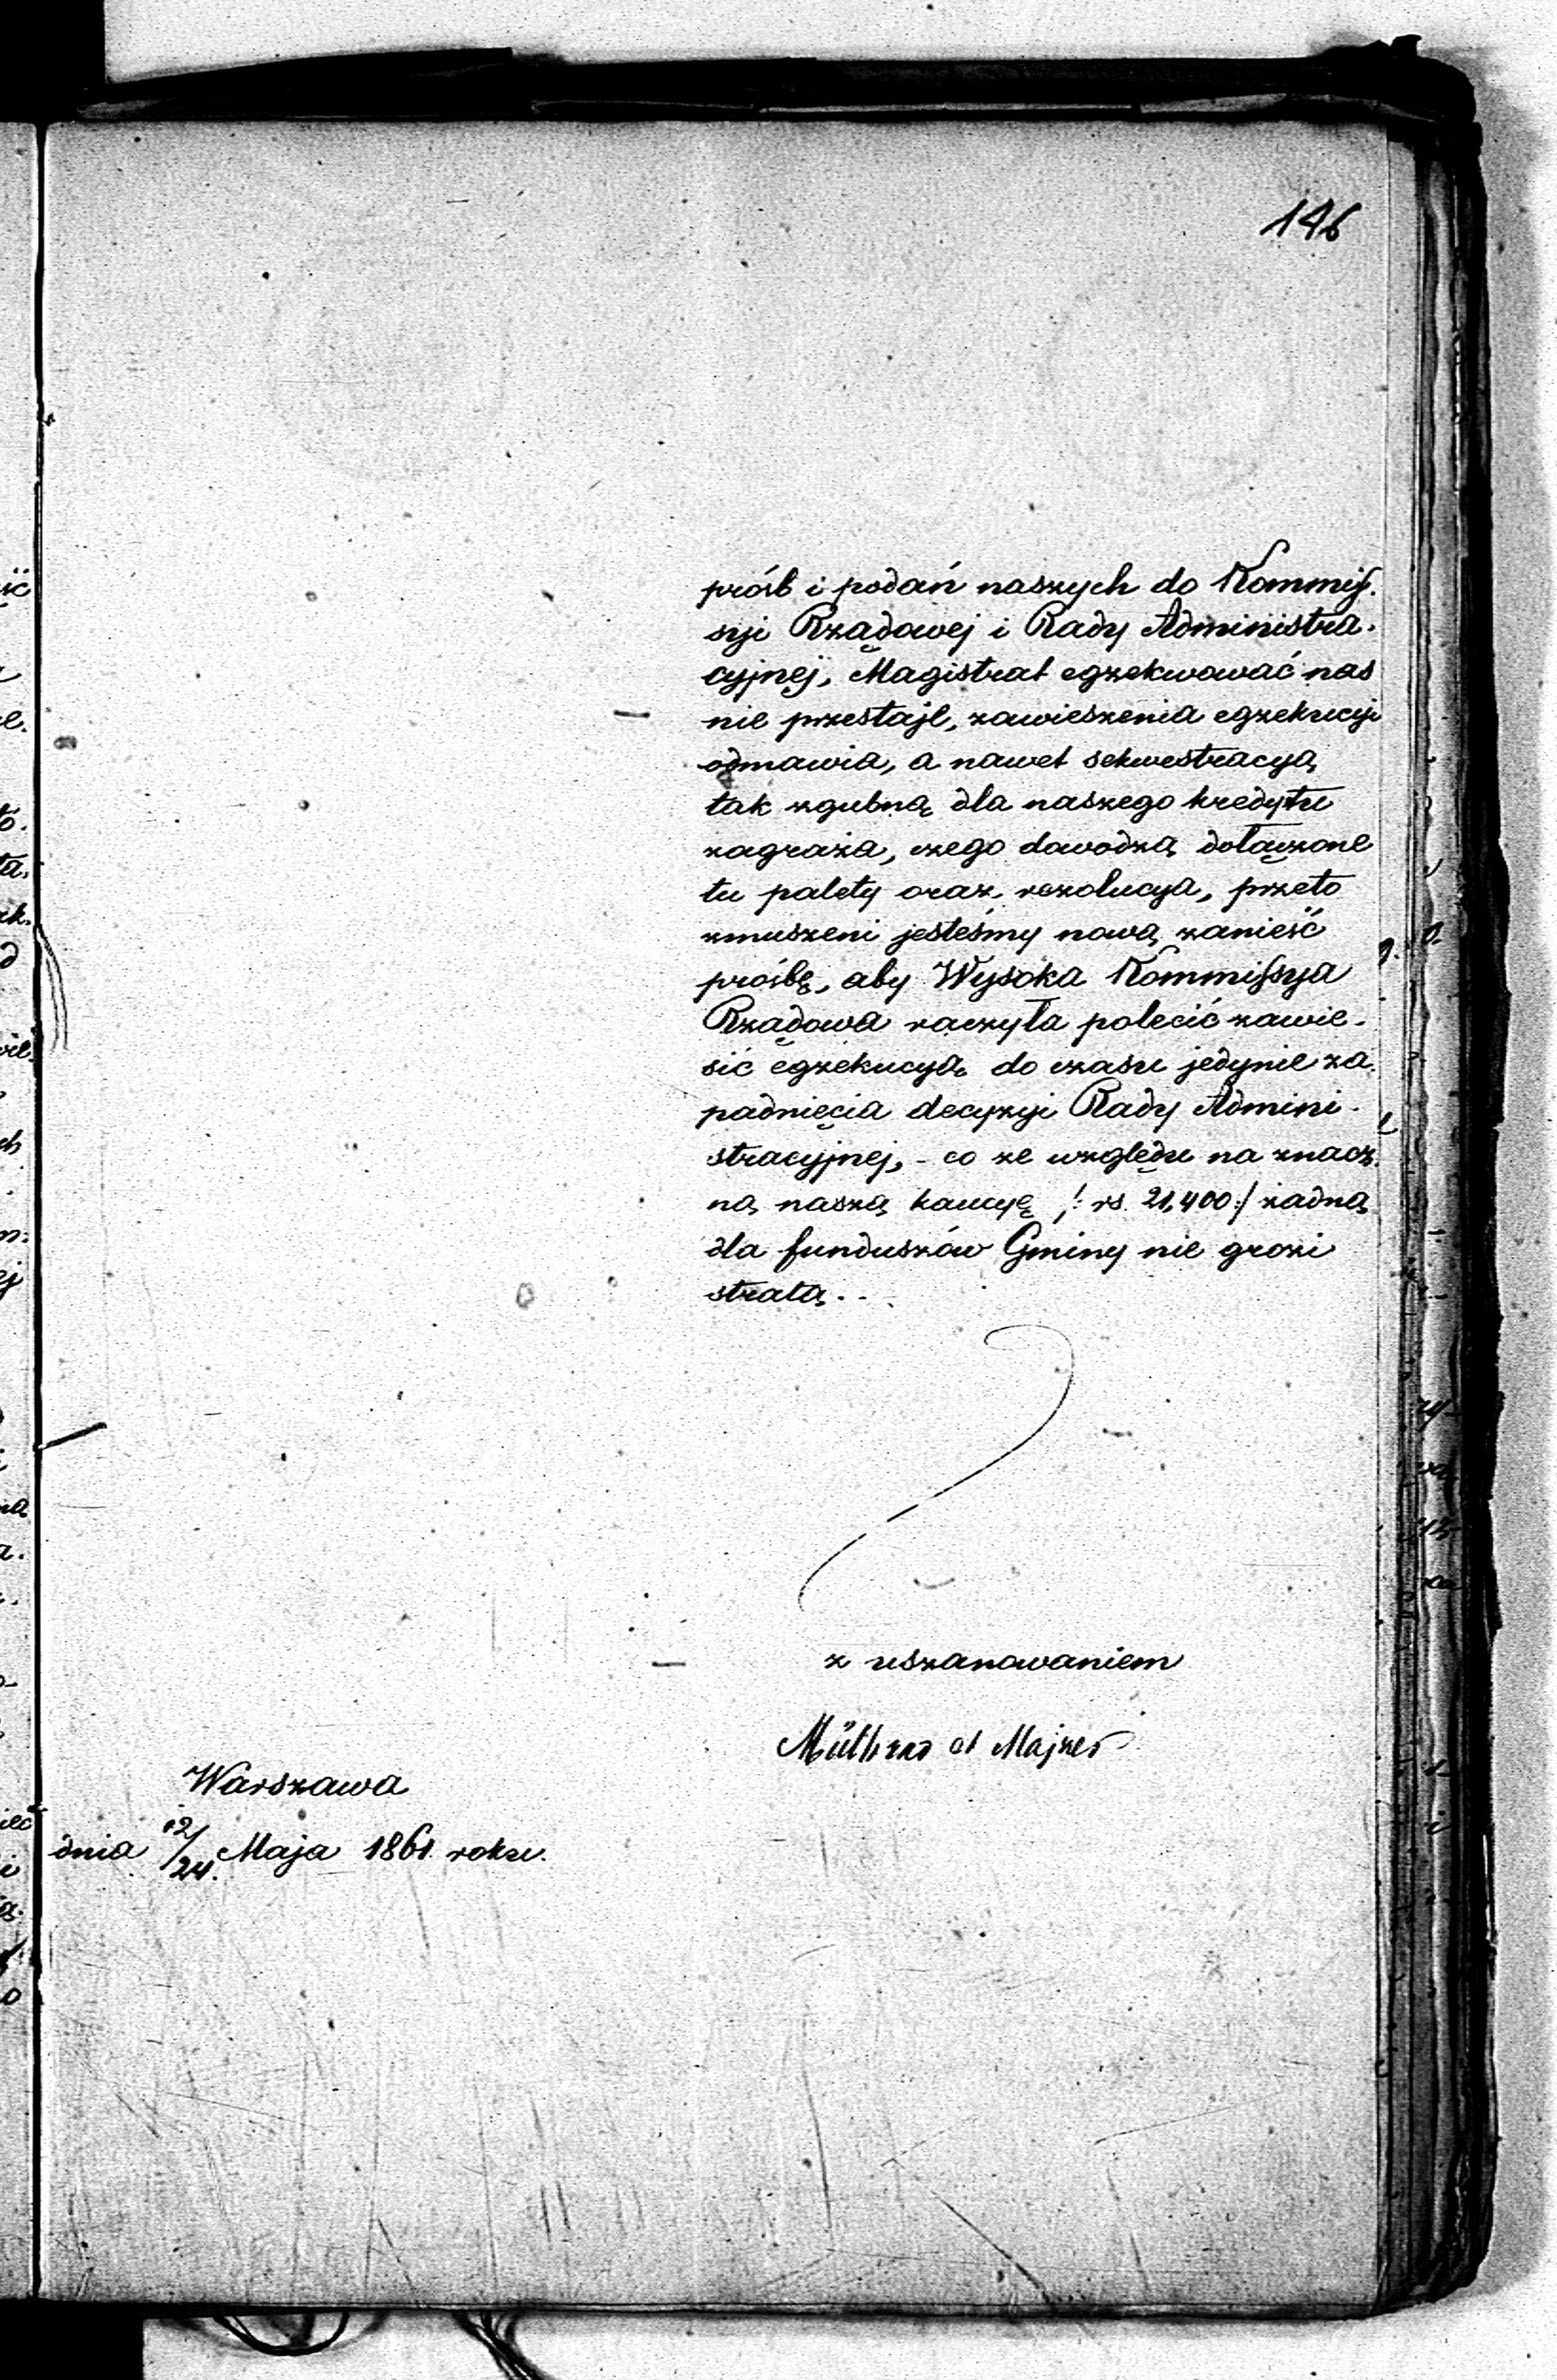 146
próśb i podań naszych do Kommis-
syi Rządowej i Rady Administra-
cyjnej, Magistrat egzekwować nas
nie przestaje, zawieszenia egzekucyi
odmawia, a nawet sekwestracyą
tak zgubną dla naszego kredytu
zagraża, czego dowodzą dołączone
tu palety oraz rezolucya, przeto
zmuszeni jesteśmy nową zanieść
prośbę, aby Wysoka Kommissya
Rządowa raczyła polecić zawie-
sić egzekucyą do czasu jedynie za-
padnięcia decyzyi Rady Admini-
stracyjnej, - co ze względu na znacz-
ną naszą kaucyę /: rs. 21,400 :/ żadną
dla funduszów Gminy nie grozi
stratą. -
z uszanowaniem
et Majzer
Warszawa
dnia 12/24. Maja 1861. roku.